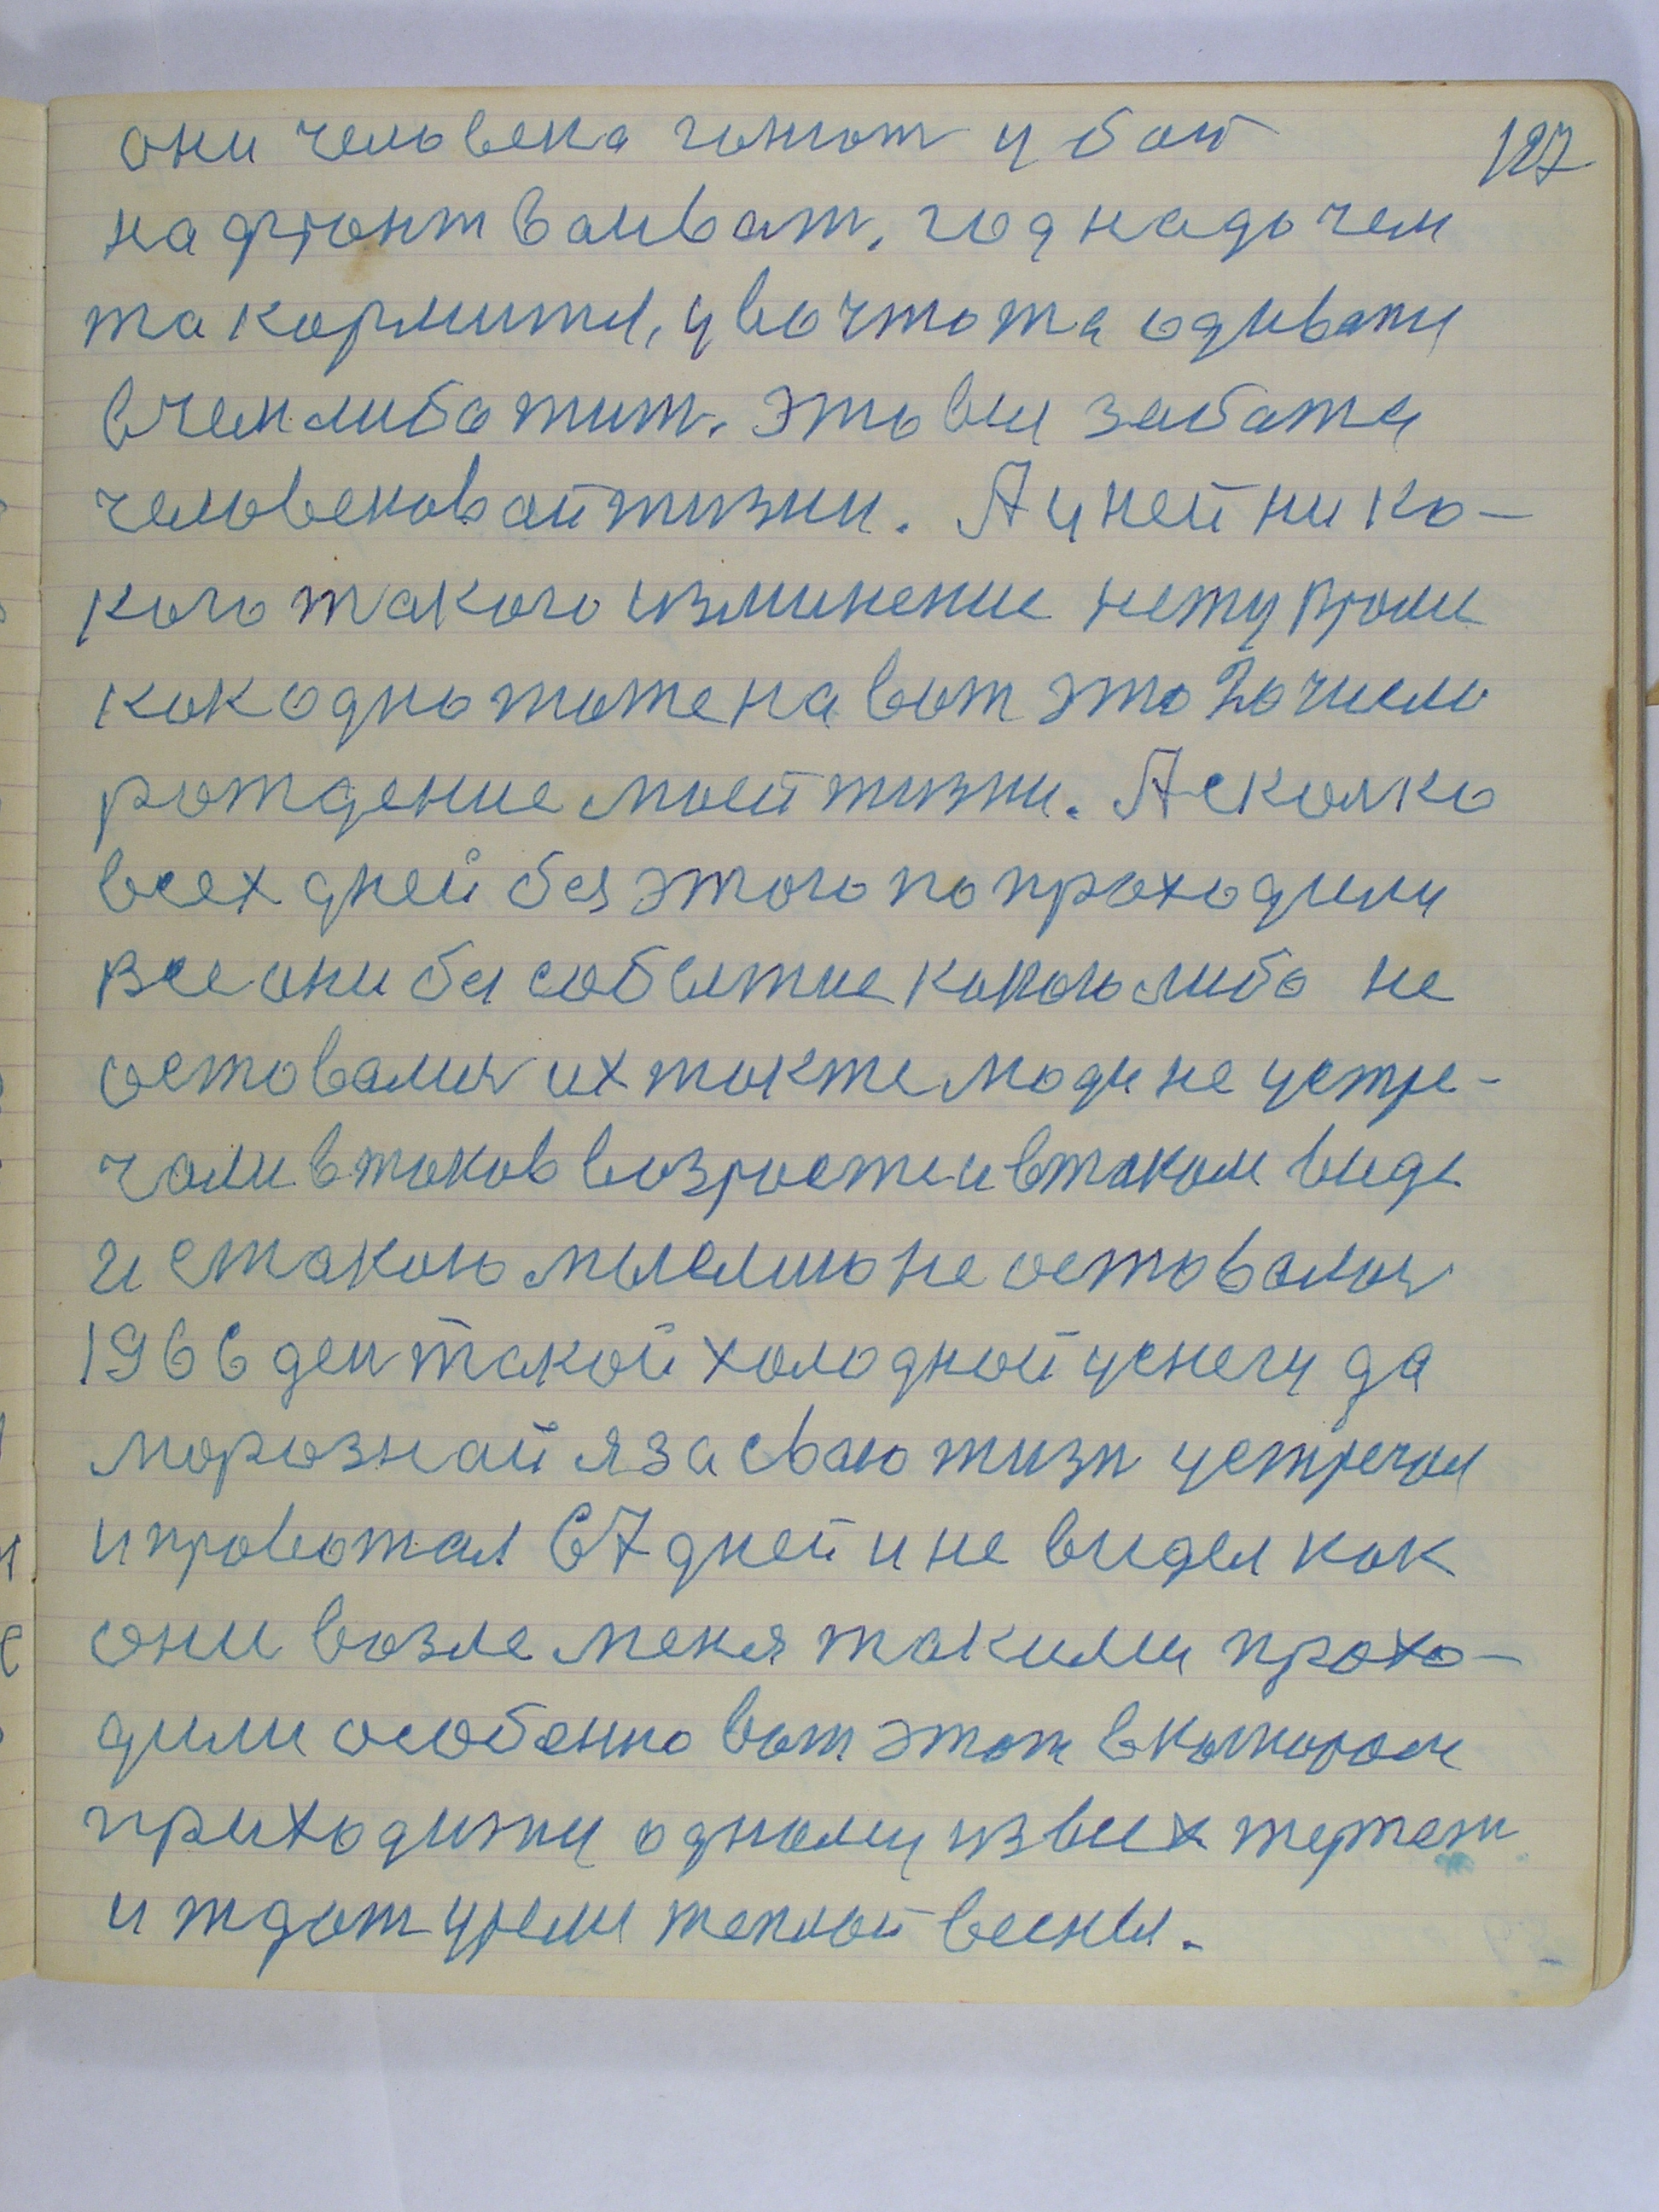 они человека гонют у бой
187
на фронт ваиват. год надо чем
та кормится, у вочтота одивати
в чем либо жит. это всы забаты
человековай жизни. А у ней ни ка-
кого такого изминение нету кроми
как одно тоже на вот это 20 число
рождение моей жизни. А сколко
всех дней без этого попроходили
все они без событие какою либо не
оставались их так же люди не устре-
чали в таков возрасте и в таком виде
и с такою мыслию не оставались
1966 ден такой холодной уснегу да
морознай я за сваю жизн устречал
и провожал 67 дней и не видел как
они возле меня такими прохо-
дили особенно вот этот в котором
приходится одному из всех тяжат
и ждат уреми теплой весны.